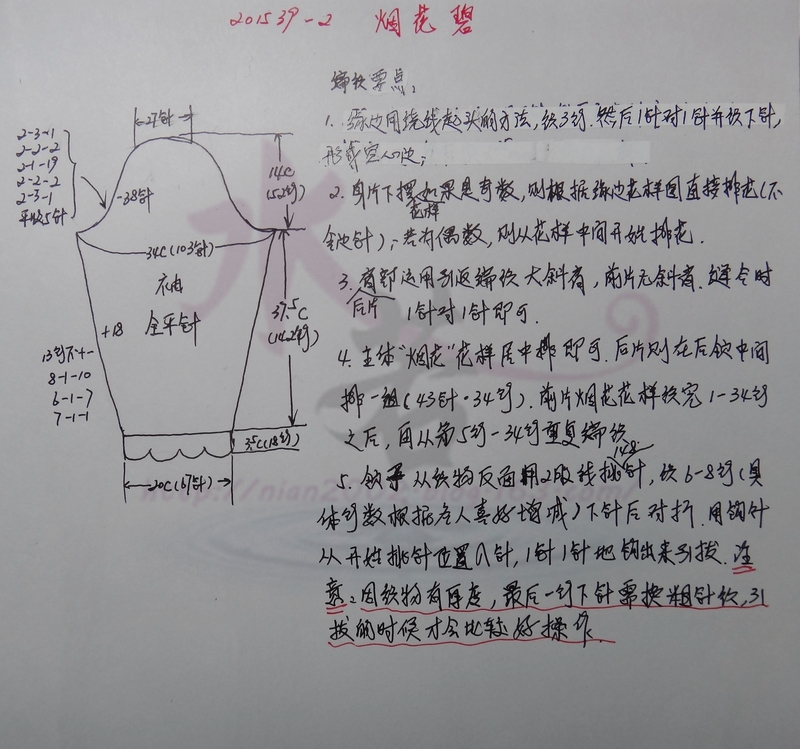 201539-2 烟花碧
编织要点:
27针
2-3-1
2-2-2
2-1-19
2-2-2
2-3-1
平收5针
-38针
14C
(52行)
34C(103针)
衣袖
全平针
37.5C
(142行)
+18
13行不+-
8-1-10
6-1-7
7-1-1
3.5C(18行)
20C(67针)
1. 缘边用绕线起头的方法,织3行.然后1针对1针并织下针,
形成空心边;
2. 身片下摆如果是奇数,则根据缘边花样图直接排花(不
花样
含边针);若为偶数,则从花样中间开始排花.
3. 肩部运用引返编织大斜肩,前片无斜肩.缝合时
后片
1针对1针即可.
4. 主体“烟花”花样居中排即可.后片则在后领中间
排一组(43针·34行).前片烟花花样织完1-34行
之后,再从第5行-34行重复编织
148
5. 领子从织物反面用2股线挑针,织6-8行(具
体行数根据个人喜好增减)下针后对折.用钩针
从开始挑针位置入针,1针1针地钩出来引拔.注
意:因织物有厚度,最后一行下针需换粗针织,引
拔的时候才会比较好操作.
水